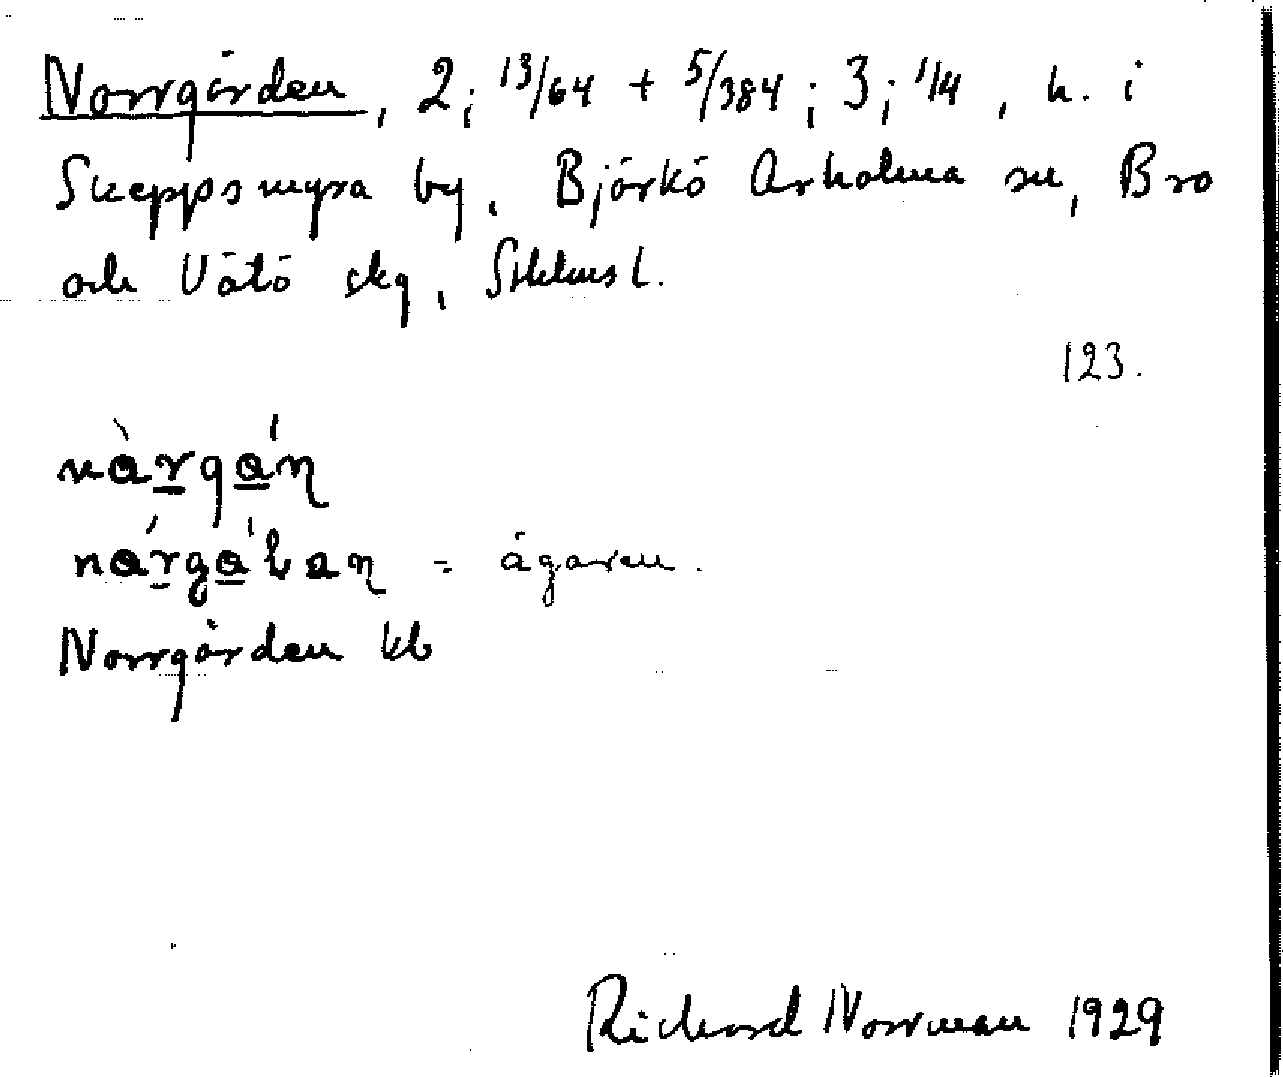 Norrgården, 2; 13/64 + 5/384; 3; 1/4, h. i
Skeppsmyra by, Björkö Arholma sn, Bro
och Vätö skg, Sthlms l.
123.
nàrgán
nárgáɭan = ägaren.
Norrgården kb
Richard Norrman 1929